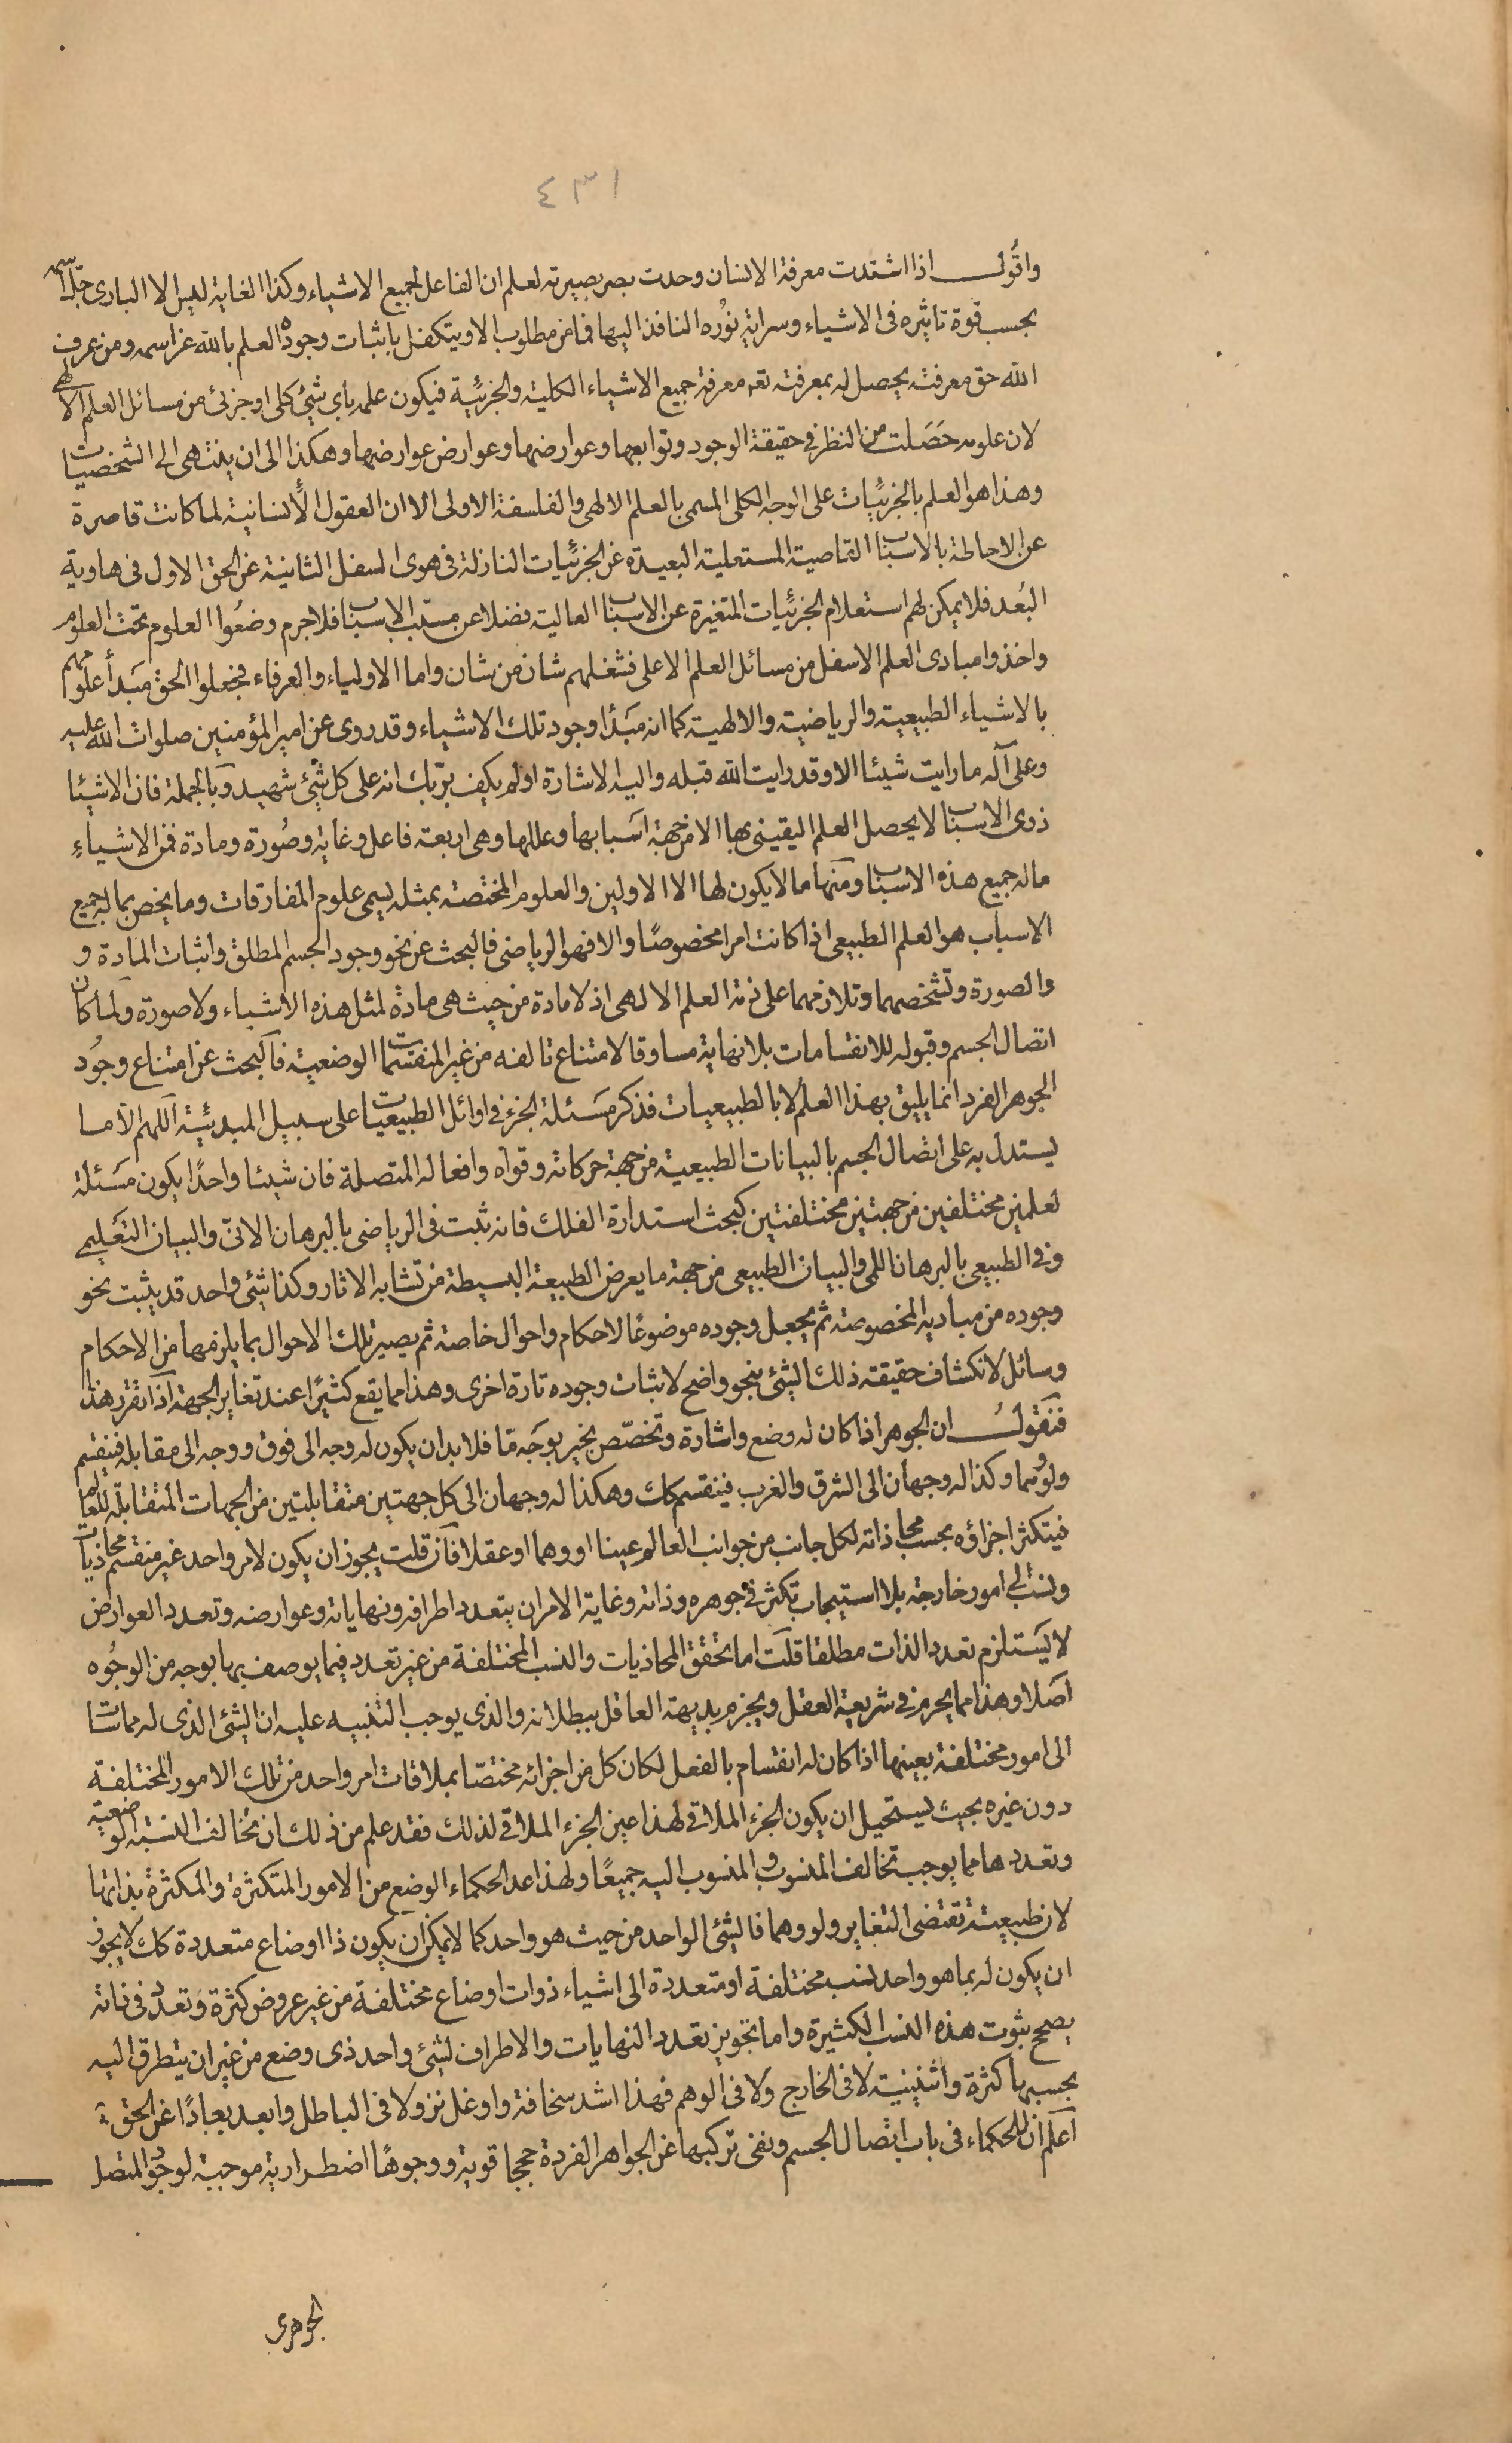 ٤٣١
واقول اذا اشتدت معرفة الانسان وحدت بصر بصيرته لعلم ان الفاعل لجميع الاشياء وكذا الغاية ليس الا الباري جل اسمه
بحسب قوة تاثيره فى الاشياء وسراية نوره النافذ اليها فما من مطلوب الا ويتكفل باثبات وجوده العلم بالله عز اسمه ومن عرف
الله حق معرفته يحصل له بمعرفته تعه معرفة جميع الاشياء الكلية والجزئية فيكون علمه باى شئ كلى او جزئى من مسائل العلم الالهى
لان علومه حصلت من النظر فى حقيقة الوجود وتوابعها وعوارضها وعوارض عوارضها وهكذا الى ان ينتهى الى الشخصيات
وهذا هو العلم بالجزئيات على الوجه الكلى المسمى بالعلم الالهى والفلسفة الاولى الا ان العقول الانسانية لما كانت قاصرة
عن الاحاطة بالاسباب القاصية المستعلية البعيدة عن الجزئيات النازلة فى هوى السفل الثانية عن الحق الاول فى هاوية
البعد فلا يمكن لهم استعلام الجزئيات المتغيرة عن الاسباب العالية فضلا عن مسبب الاسباب فلا جرم وضعوا العلوم تحت العلوم
واخذوا مبادى العلم الاسفل من مسائل العلم الاعلى فشغلهم شان من شان واما الاولياء والعرفاء فجعلوا الحق مبدأ علومهم
بالاشياء الطبيعية والرياضية والالهية كما انه مبدأ وجود تلك الاشياء وقد روى عن امير المؤمنين صلوات الله عليه
وعلى آله ما رايت شيئا الا وقد رايت الله قبله واليه الاشارة اولم يكف بربك انه على كل شئ شهيد وبالجملة فان الاشيئا
ذوى الاسباب لا يحصل العلم اليقينى بها الا من جهة اسبابها وعللها وهى اربعة فاعل وغاية وصورة ومادة فمن الاشياء
ماله جميع هذه الاسباب ومنها ما لا يكون لها الا الاولين والعلوم المختصة بمثله يسمى علوم المفارقات وما يختص بماله جميع
الاسباب هو العلم الطبيعى اذا كانت امرا مخصوصا والا فهو الرياضى فالبحث عن نحو وجود الجسم المطلق واثبات المادة و
والصورة وتشخصهما وتلازمهما على ذمة العلم الالهى اذ لا مادة من حيث هى مادة لمثل هذه الاشياء ولا صورة ولما كان
اتصال الجسم وقبوله للانقسامات بلا نهاية مساوقا لامتناع تالفه من غير المنقسمات الوضعية فالبحث عن امتناع وجود
الجوهر الفرد انما يليق بهذا العلم لا بالطبيعيات فذكر مسئلة الجزء فى اوائل الطبيعيات على سبيل المبدئية اللهم الا ما
يستدل به على اتصال الجسم بالبيانات الطبيعية من جهة حركاته وقواه وافعاله المتصلة فان شيئا واحدا يكون مسئلة
لعلمين مختلفين من جهتين مختلفتين كبحث استدارة الفلك فانه ثبت فى الرياضى بالبرهان الانى والبيان التعليمى
وفى الطبيعى بالبرهان اللمى والبيان الطبيعى من جهة ما يعرض الطبيعة البسيطة من تشابه الاثار وكذا شئ واحد قد يثبت نحو
وجوده من مباديه المخصوصة ثم يجعل وجوده موضوعا لاحكام واحوال خاصة ثم يصير تلك الاحوال بما يلزمها من الاحكام
وسائل لانكشاف حقيقة ذلك الشئ بنحو واضح لاثبات وجوده تارة اخرى وهذا مما يقع كثيرا عند تغاير الجهة اذا تقرر هذا
فنقول ان الجوهر اذا كان له وضع واشارة وتخصص بخير بوجه ما فلا بد ان يكون له وجه الى فوق ووجه الى مقابله فينقسم
ولو وهما وكذا له وجهان الى الشرق والغرب فينقسم كك وهكذا له وجهان الى كل جهتين متقابلتين من الجهات المتقابلة للعالم
فيتكثر اجزاؤه بحسب محاذاته لكل جانب من جوانب العالم عينا او وهما او عقلا فان قلت يجوز ان يكون لامر واحد غير منقسم محاذيات
ونسب الى امور خارجة بلا استيجاب تكثر فى جوهره وذاته وغاية الامر ان يتعدد اطرافه ونهاياته وعوارضه وتعدد العوارض
لا يستلزم تعدد الذات مطلقا قلت اما تحقق المحاذيات والنسب المختلفة من غير تعدد فيما يوصف بها بوجه من الوجوه
اصلا وهذا مما يحرم فى شريعة العقل ويجزم بديهة العاقل ببطلانه والذى يوجب التنبيه عليه ان الشئ الذى له مماسّات
الى امور مختلفة بعينها اذا كان له انقسام بالفعل لكان كل من اجزائه مختصا بملاقات امر واحد من تلك الامور المختلفة
دون غيره بحيث يستحيل ان يكون الجزء الملاقى لهذا عين الجزء الملاقى لذلك فقد علم من ذلك ان تخالف النسبة الوضعية
وتعددها مما يوجب تخالف المنسوب والمنسوب اليه جميعا ولهذا عد الحكماء الوضع من الامور المتكثرة والمكثرة بذاتها
لان طبيعته تقتضى التغاير ولو وهما فالشئ الواحد من حيث هو واحد كما لا يمكن ان يكون ذا اوضاع متعددة كك لا يجوز
ان يكون له بما هو واحد نسب مختلفة او متعددة الى اشياء ذوات اوضاع مختلفة من غير عروض كثرة وتعدد فى ذاته
يصحح ثبوت هذه النسب الكثيرة واما تجويز تعدد النهايات والاطراف لشئ واحد ذى وضع من غير ان يتطرق اليه
بحسبها كثرة واثنينية لا فى الخارج ولا فى الوهم فهذا اشد سخافة واوغل نزولا فى الباطل وابعد بعادا عن الحق
اعلم ان للحكماء فى باب اتصال الجسم ونفى تركبها عن الجواهر الفردة حججا قوية ووجوها اضطرارية موجبة لوجود المتصل
الجوهرى